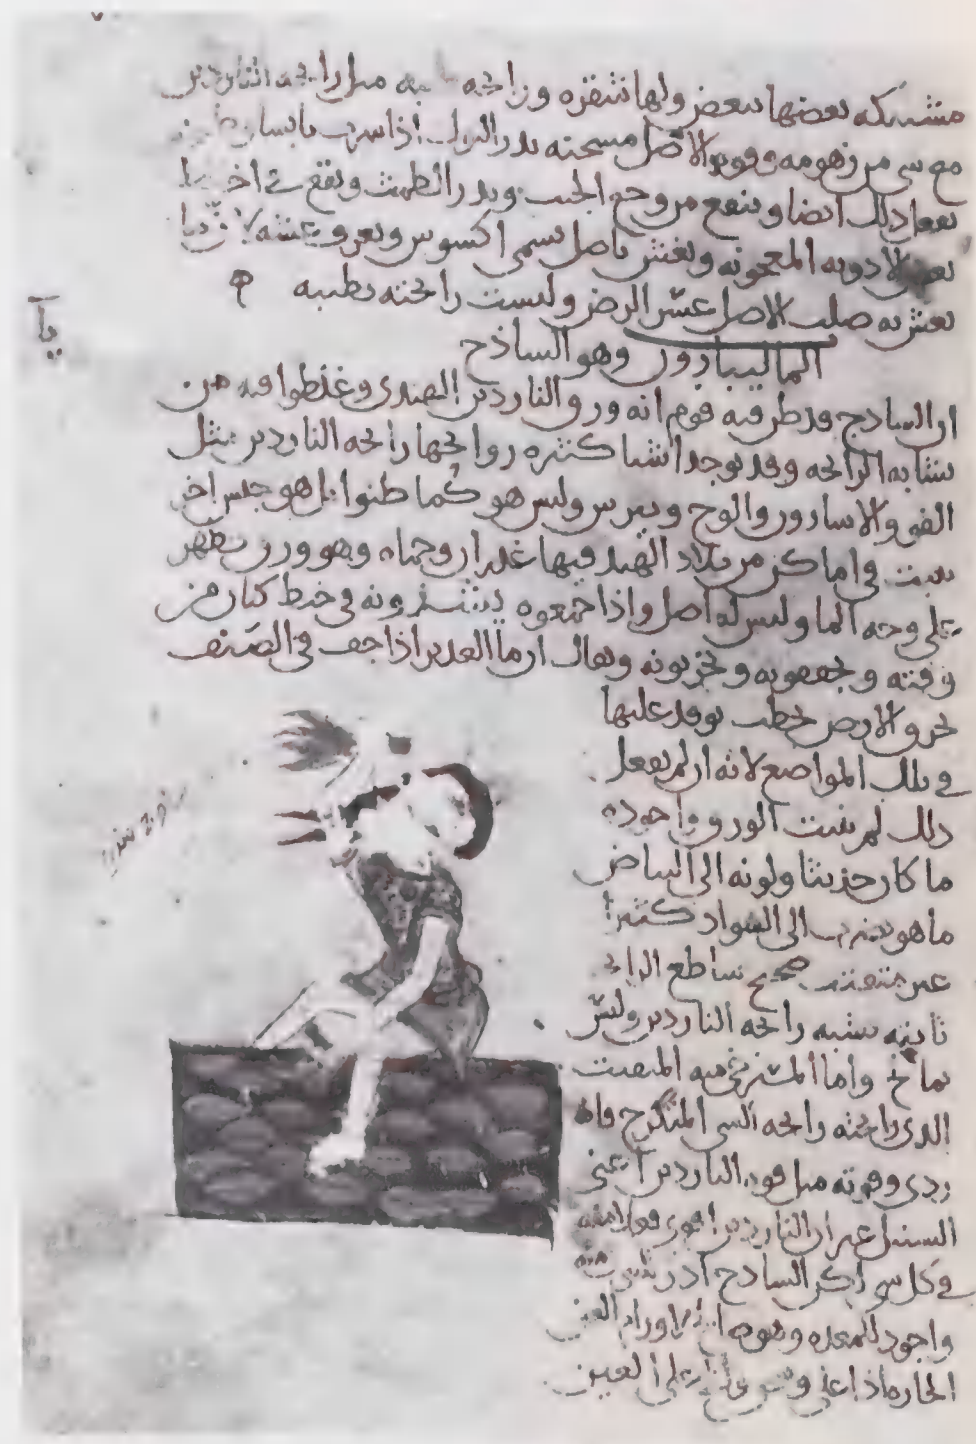 مشتبكه بعضها ببعض ولها شقره ورائحه مثل رائحه الناردين
مع شي من زهومه وقوه الاصل مسخنه يدر البول اذا شرب
يفعل ذلك ايضا وينفع من وجع الجنب ويدر الطمث ويقع في اخلاط
بعض الادويه المعجونه ويغش باصل يسمى اكسوس ويعرف غشه لان ما
يغش به صلب الاصل عسر الرض وليست رائحته بطيبه
يا
الماليبابرون وهو الساذج
ان الساذج قد ظن فيه قوم انه ورق الناردين الهندي وغلطوا فيه من
تشابه الرائحه وقد يوجد اشيا كثيره روائحها رائحه الناردين مثل
الفو والاسارون والوج وليس هو كما ظنوا بل هو جنس اخر
ينبت في اماكن من بلاد الهند فيها غدران وحماه وهو ورق يظهر
على وجه الما وليس له اصل واذا جمعوه يشدونه في خيط كتان من
وقته ويجففونه ويخزنونه ويقال ان ما الغدير اذا جف في الصيف
تحرق الارض بحطب يوقد عليها
في تلك المواضع لانه ان لم يفعل
ذلك لم ينبت الورق واجوده
ما كان حديثا ولونه الى البياض
ما هو يضرب الى السواد كثيرا
غير متفتت صحيح ساطع الرائحه
ثابته يشبه رائحه الناردين وليس
بمالح واما المسترخي منه المتفتت
الذي رائحته رائحه الشي المتكرج فانه
ردي وقوته مثل قوه الناردين اعني
السنبل غير ان الناردين اقوى فعلا منه
في كل شي لكن الساذج ادر للبول منه
واجود للمعده وهو اورام العين
الحاره اذا على العين